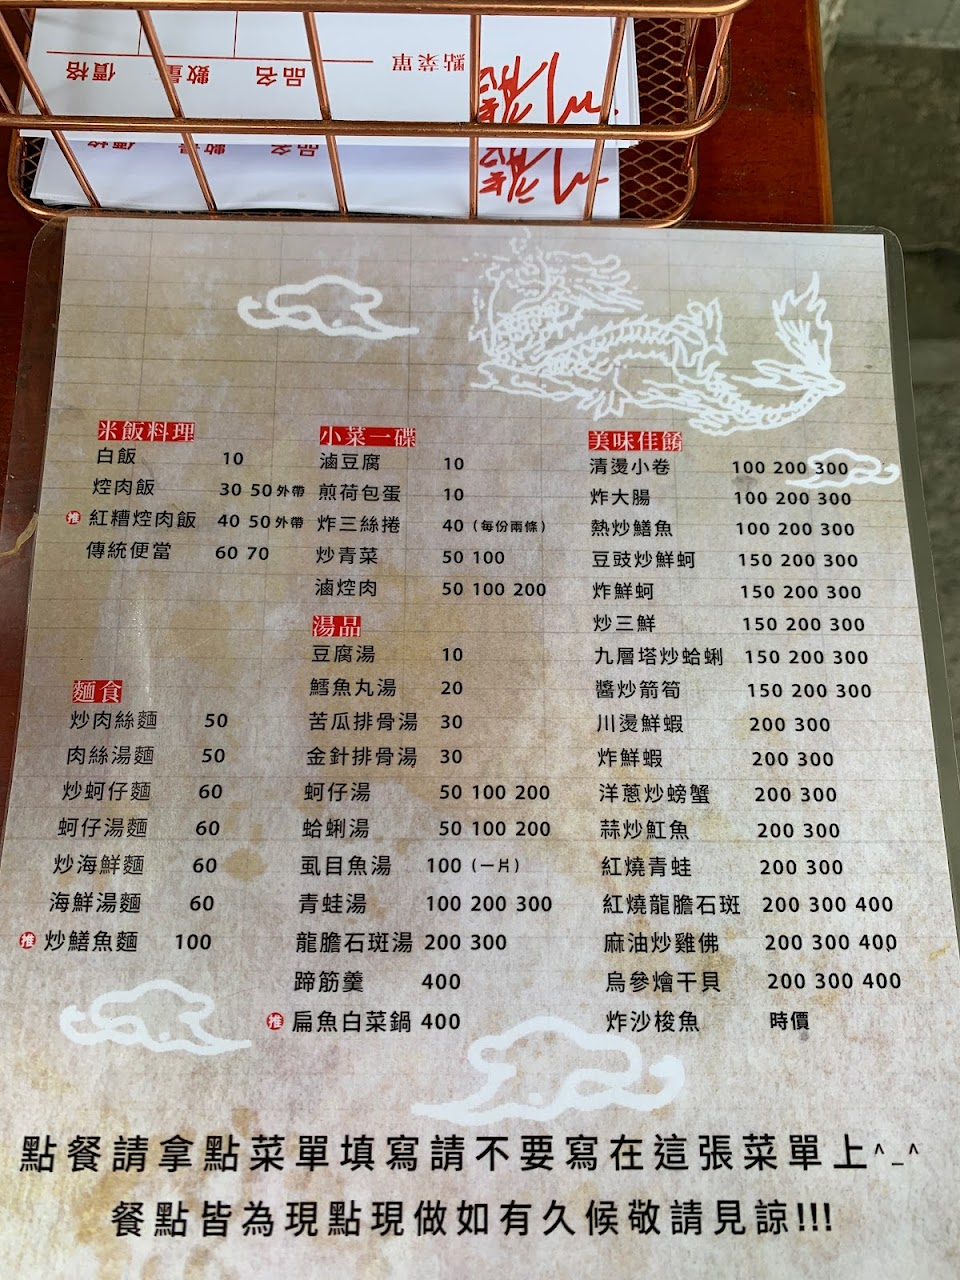 點菜單
品名 數量 價格
品名 數量 價格
米飯料理
白飯 10
焢肉飯 30 50 外帶
推 紅糟焢肉飯 40 50 外帶
傳統便當 60 70
麵食
炒肉絲麵 50
肉絲湯麵 50
炒蚵仔麵 60
蚵仔湯麵 60
炒海鮮麵 60
海鮮湯麵 60
推 炒鱔魚麵 100
小菜一碟
滷豆腐 10
煎荷包蛋 10
炸三絲捲 40 (每份兩條)
炒青菜 50 100
滷焢肉 50 100 200
湯品
豆腐湯 10
鱈魚丸湯 20
苦瓜排骨湯 30
金針排骨湯 30
蚵仔湯 50 100 200
蛤蜊湯 50 100 200
虱目魚湯 100 (一片)
青蛙湯 100 200 300
龍膽石斑湯 200 300
蹄筋羹 400
推 扁魚白菜鍋 400
美味佳餚
清燙小卷 100 200 300
炸大腸 100 200 300
熱炒鱔魚 100 200 300
豆豉炒鮮蚵 150 200 300
炸鮮蚵 150 200 300
炒三鮮 150 200 300
九層塔炒蛤蜊 150 200 300
醬炒箭筍 150 200 300
川燙鮮蝦 200 300
炸鮮蝦 200 300
洋蔥炒螃蟹 200 300
蒜炒魟魚 200 300
紅燒青蛙 200 300
紅燒龍膽石斑 200 300 400
麻油炒雞佛 200 300 400
烏參燴干貝 200 300 400
炸沙梭魚 時價
點餐請拿點菜單填寫請不要寫在這張菜單上^_^
餐點皆為現點現做如有久候敬請見諒!!!